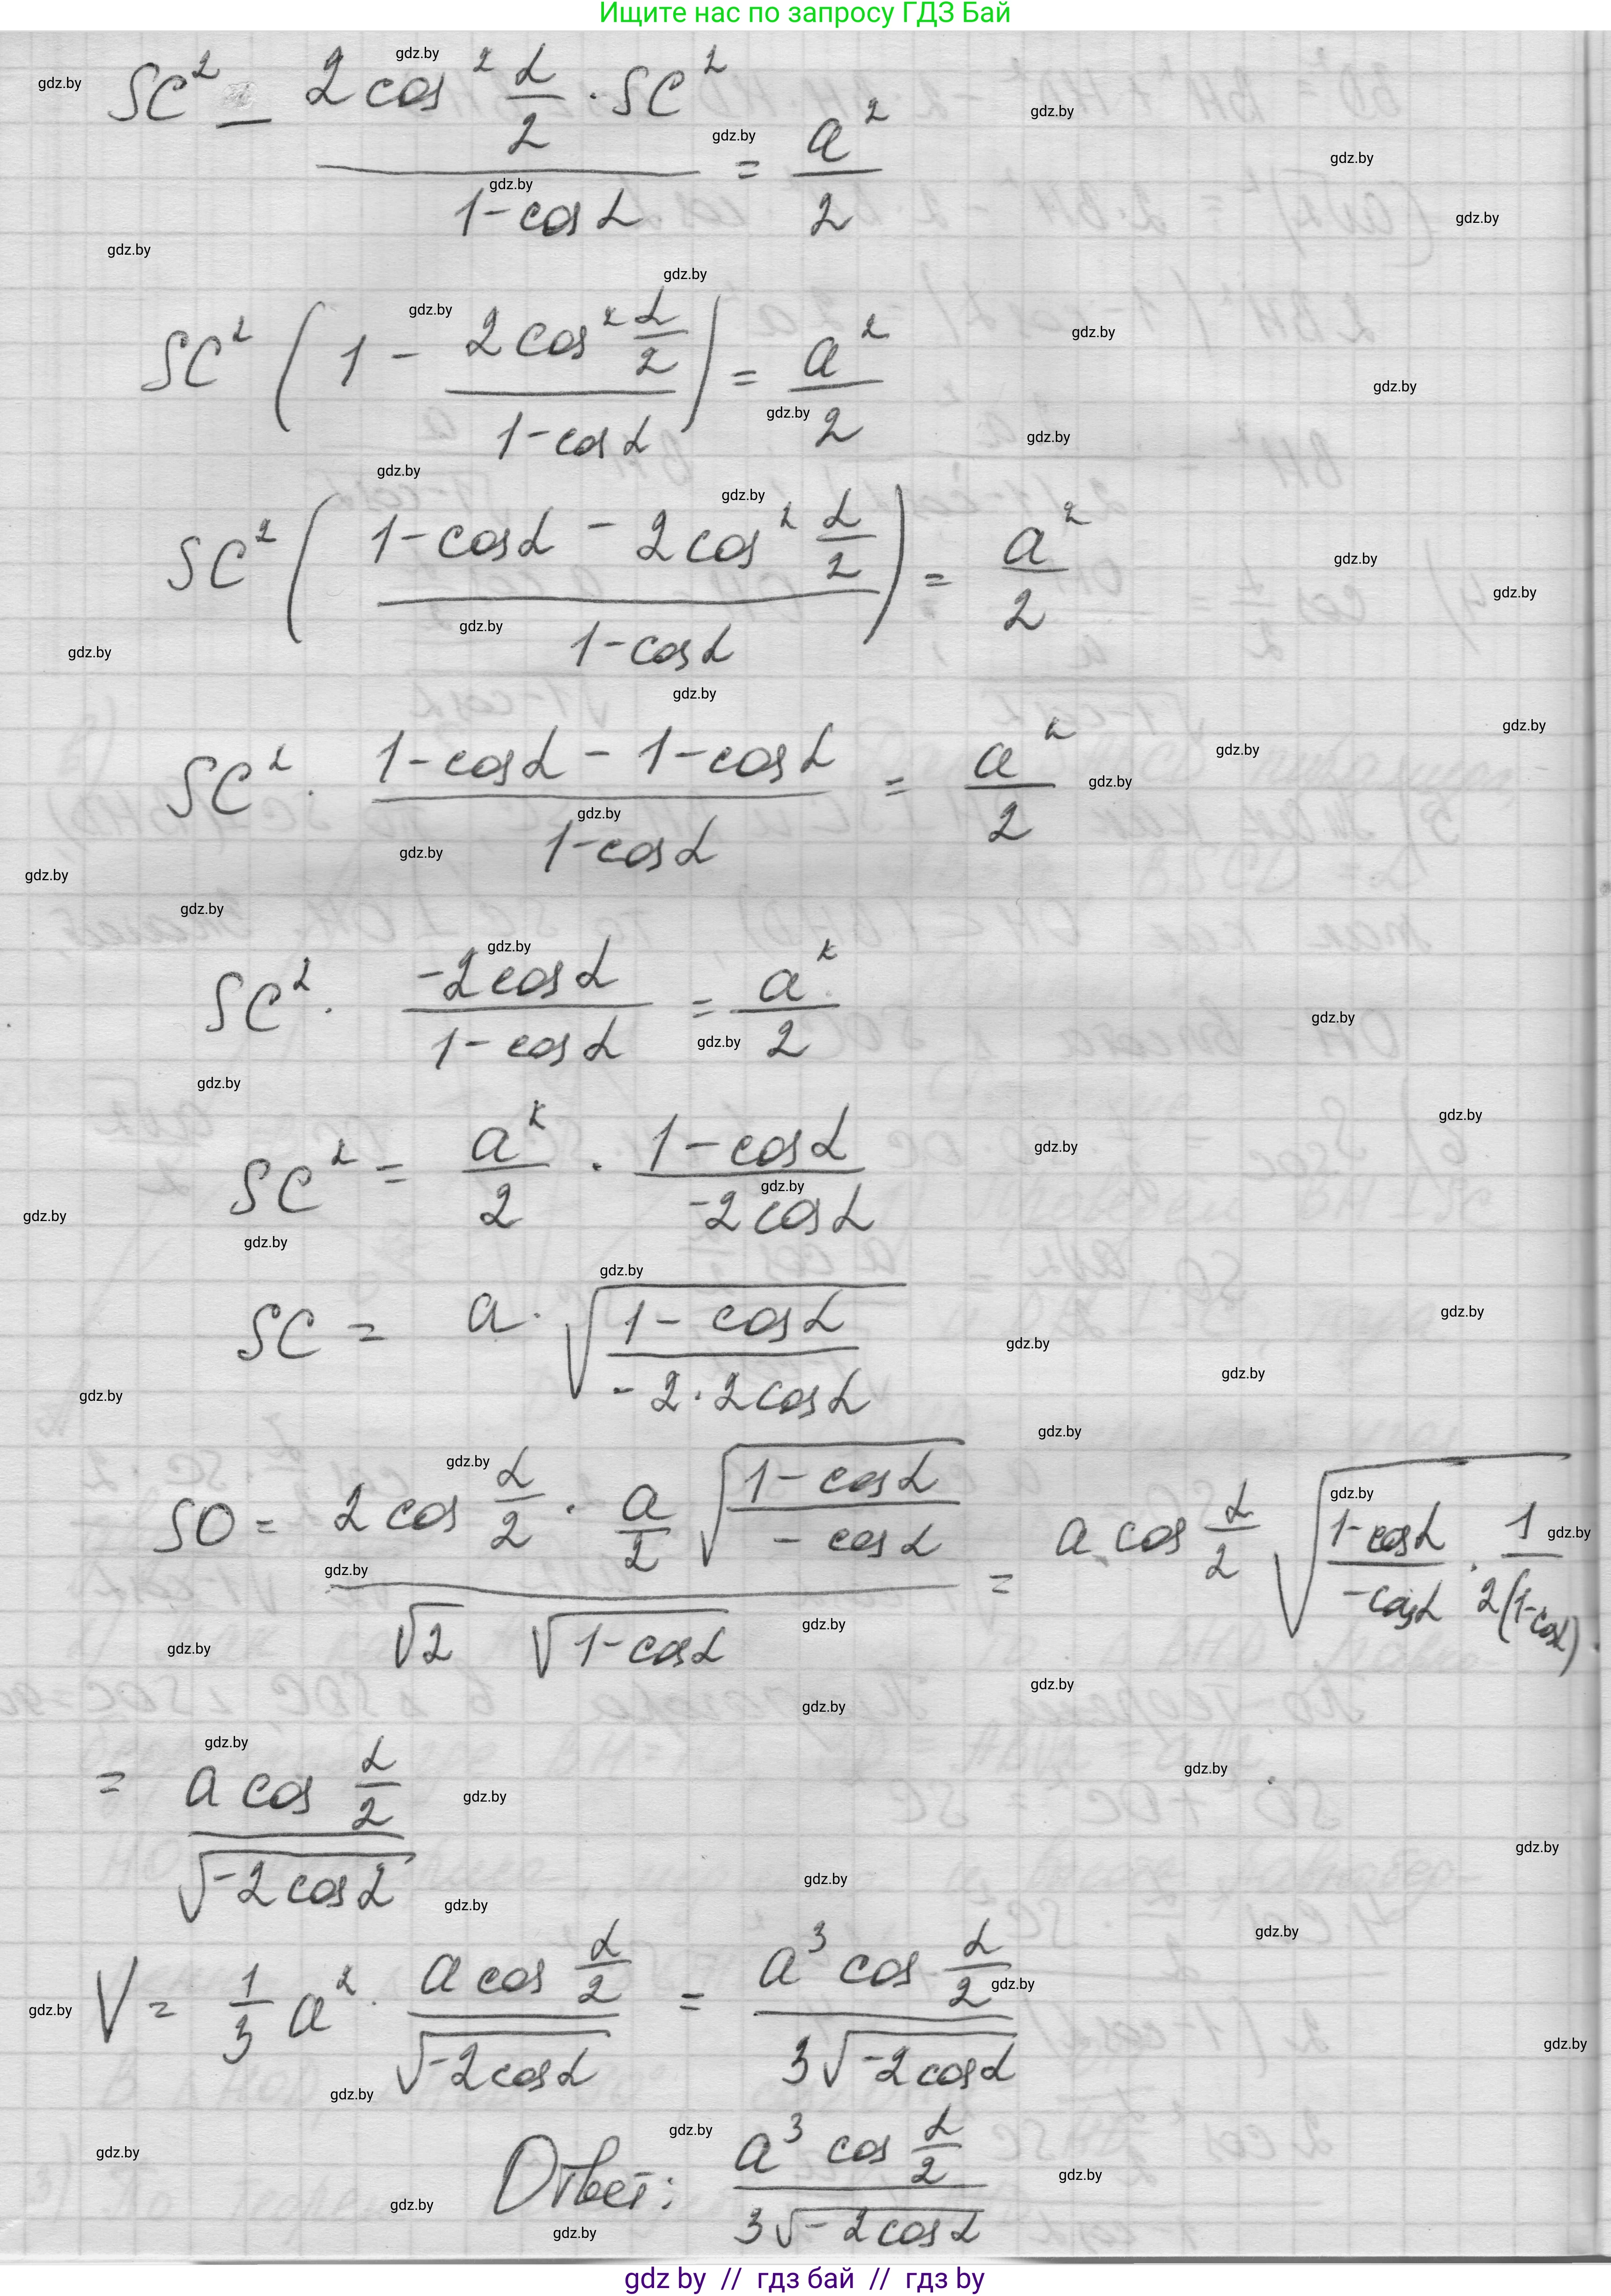 Ищите нас по запросу ГДЗ Бай
SC² − (2cos² α/2 · SC²)/(1−cosα) = a²/2
SC² (1 − (2cos² α/2)/(1−cosα)) = a²/2
SC² ((1−cosα − 2cos² α/2)/(1−cosα)) = a²/2
SC² · (1−cosα − 1−cosα)/(1−cosα) = a²/2
SC² · (−2cosα)/(1−cosα) = a²/2
SC² = a²/2 · (1−cosα)/(−2cosα)
SC = a · √((1−cosα)/(−2·2cosα))
SO = (2cos α/2 · a/2 √((1−cosα)/(−cosα)))/(√2 √(1−cosα)) = a cos α/2 √((1−cosα)/(−cosα) · 1/(2(1−cosα)))
= (a cos α/2)/√(−2cosα)
V = 1/3 a² · (a cos α/2)/√(−2cosα) = (a³ cos α/2)/(3√(−2cosα))
Ответ: (a³ cos α/2)/(3√(−2cosα))
gdz by // гдз бай // гдз by